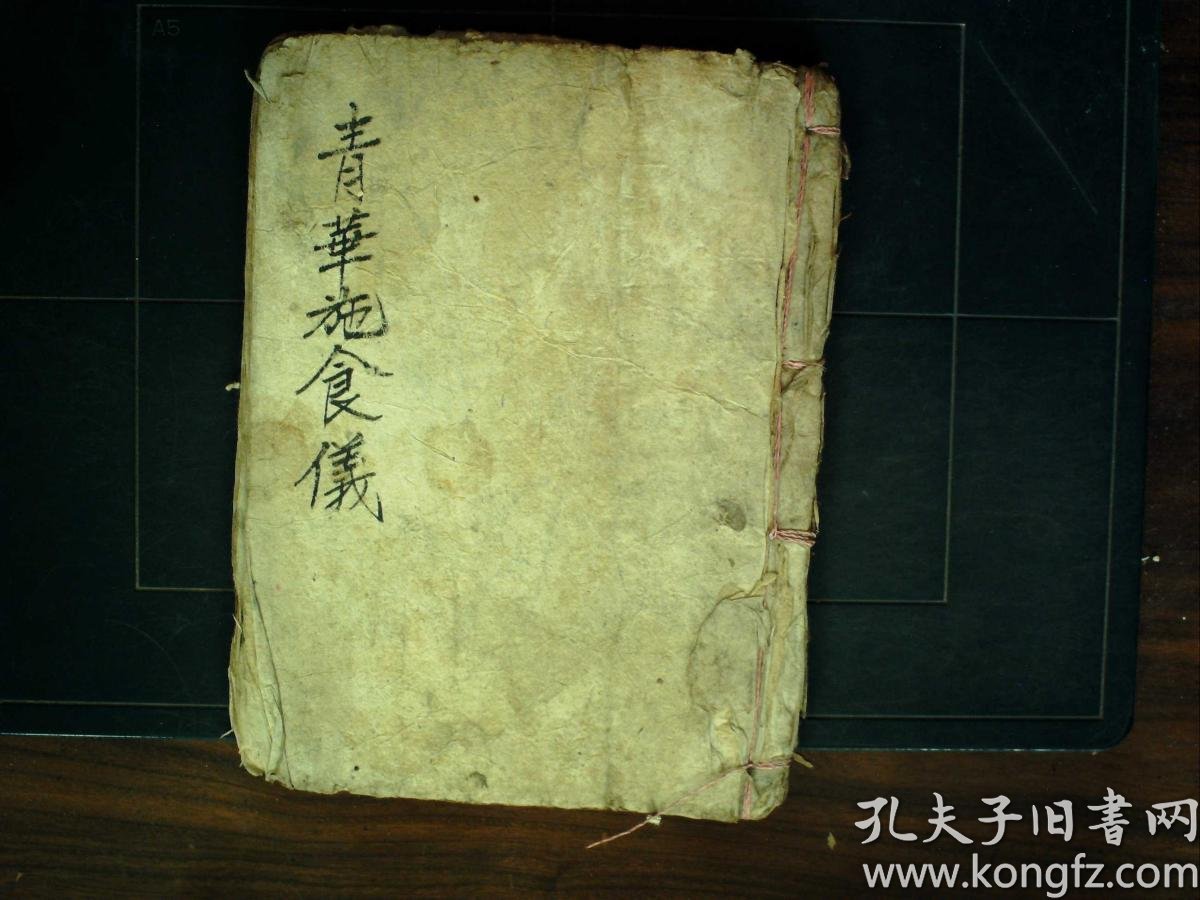 A5
青華施食儀
孔夫子旧書网
www.kongfz.com